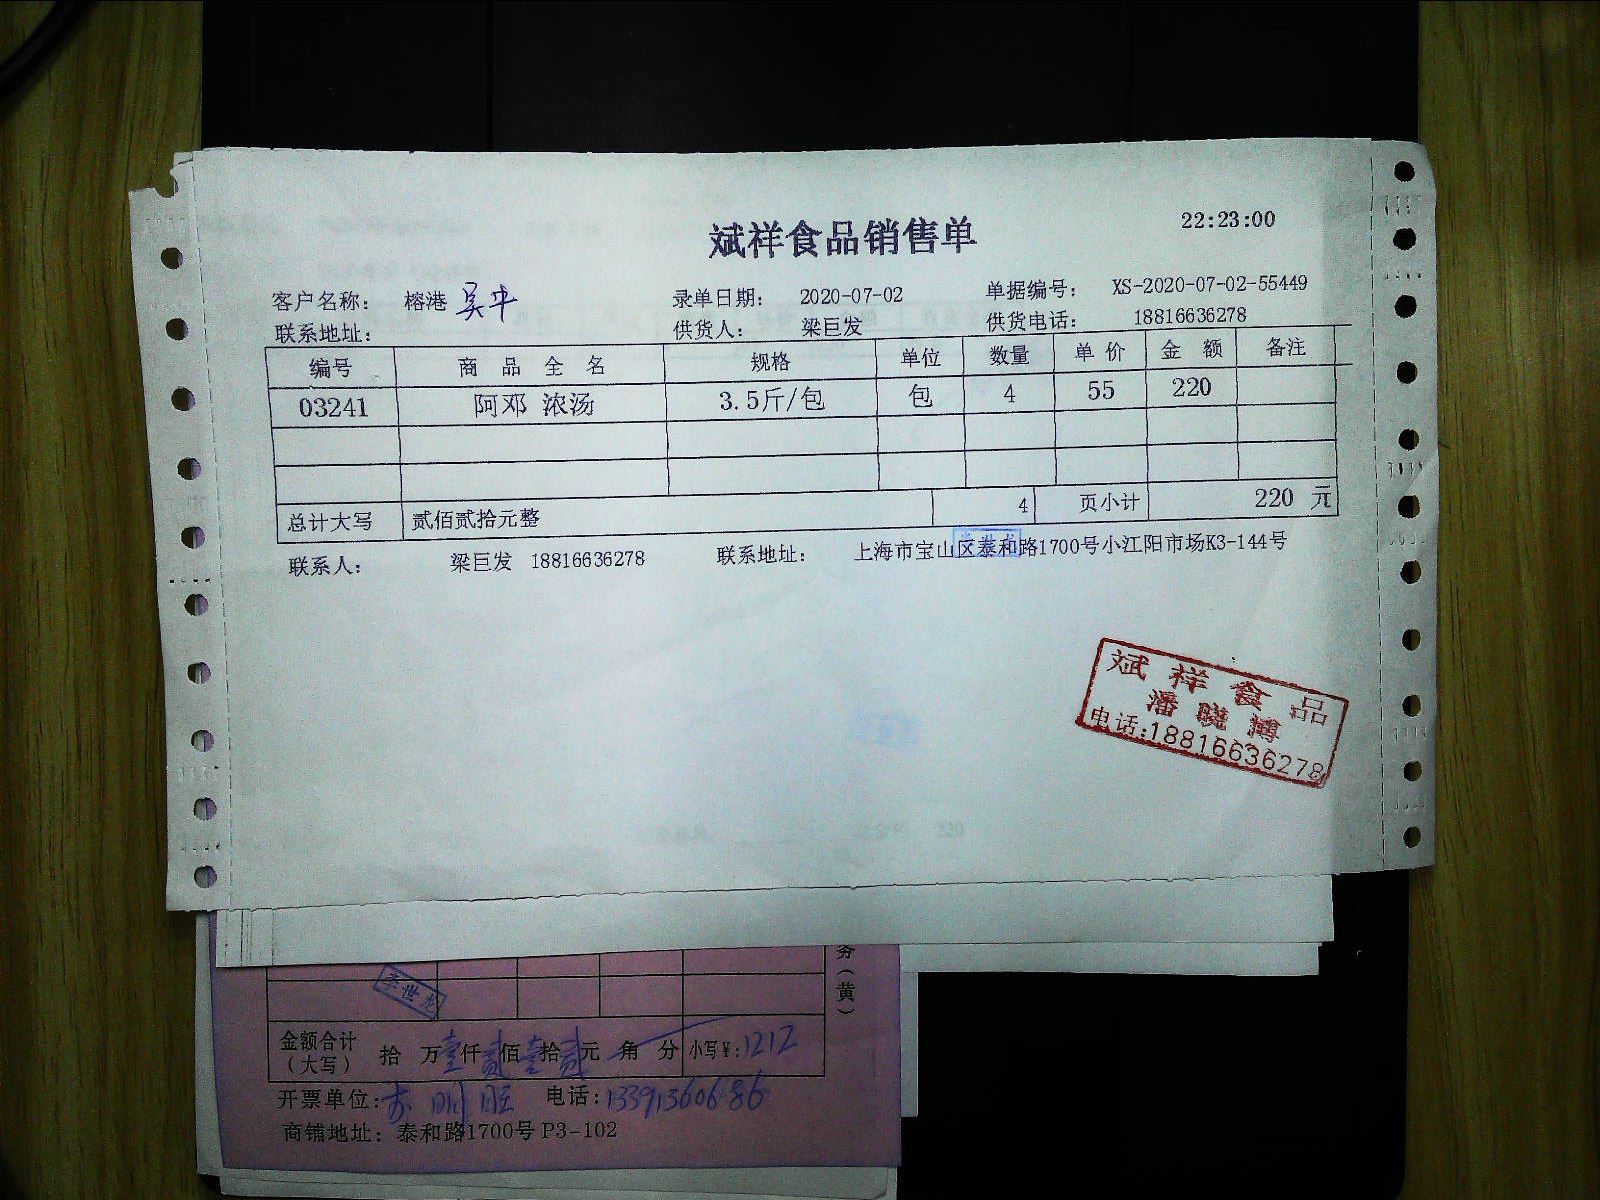 斌祥食品销售单 22:23:00
客户名称： 榕港 吴中 录单日期： 2020-07-02 单据编号： XS-2020-07-02-55449
联系地址： 供货人： 梁巨发 供货电话： 18816636278
编号 商品全名 规格 单位 数量 单价 金额 备注
03241 阿邓 浓汤 3.5斤/包 包 4 55 220
总计大写 贰佰贰拾元整 4 页小计 220 元
联系人： 梁巨发 18816636278 联系地址： 上海市宝山区泰和路1700号小江阳市场K3-144号
斌祥食品
潘晓博
电话:18816636278
务(黄)
李世龙
金额合计(大写) 拾 万 壹仟 贰佰 壹拾 贰元 角 分 小写¥:1212
开票单位: 电话:13391360686
商铺地址： 泰和路1700号 P3-102